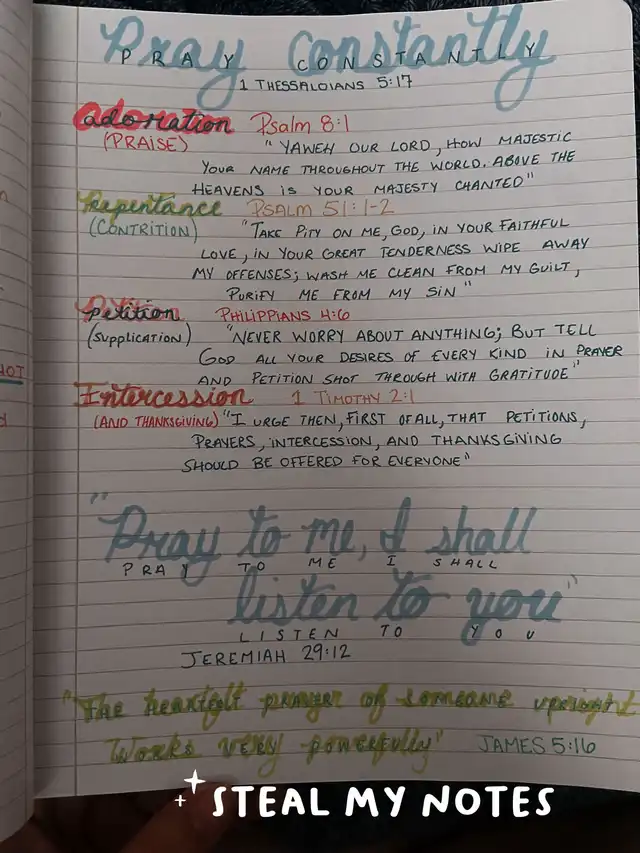 Pray Constantly
PRAY CONSTANTLY
1 THESSALOIANS 5:17
adoration Psalm 8:1
(PRAISE) "YAWEH OUR LORD, HOW MAJESTIC
YOUR NAME THROUGHOUT THE WORLD. ABOVE THE
HEAVENS IS YOUR MAJESTY CHANTED"
Repentance PSALM 51:1-2
(CONTRITION) "TAKE PITY ON ME, GOD, IN YOUR FAITHFUL
LOVE, IN YOUR GREAT TENDERNESS WIPE AWAY
MY OFFENSES; WASH ME CLEAN FROM MY GUILT,
PURIFY ME FROM MY SIN"
Petition PHILIPPIANS 4:6
(SUPPLICATION) "NEVER WORRY ABOUT ANYTHING; BUT TELL
GOD ALL YOUR DESIRES OF EVERY KIND IN PRAYER
AND PETITION SHOT THROUGH WITH GRATITUDE"
Intercession 1 TIMOTHY 2:1
(AND THANKSGIVING) "I URGE THEN, FIRST OF ALL, THAT PETITIONS,
PRAYERS, INTERCESSION, AND THANKSGIVING
SHOULD BE OFFERED FOR EVERYONE"
"Pray to me, I shall
PRAY TO ME I SHALL
listen to you"
LISTEN TO YOU
JEREMIAH 29:12
"The heartfelt prayer of someone upright
works very powerfully" JAMES 5:16
STEAL MY NOTES